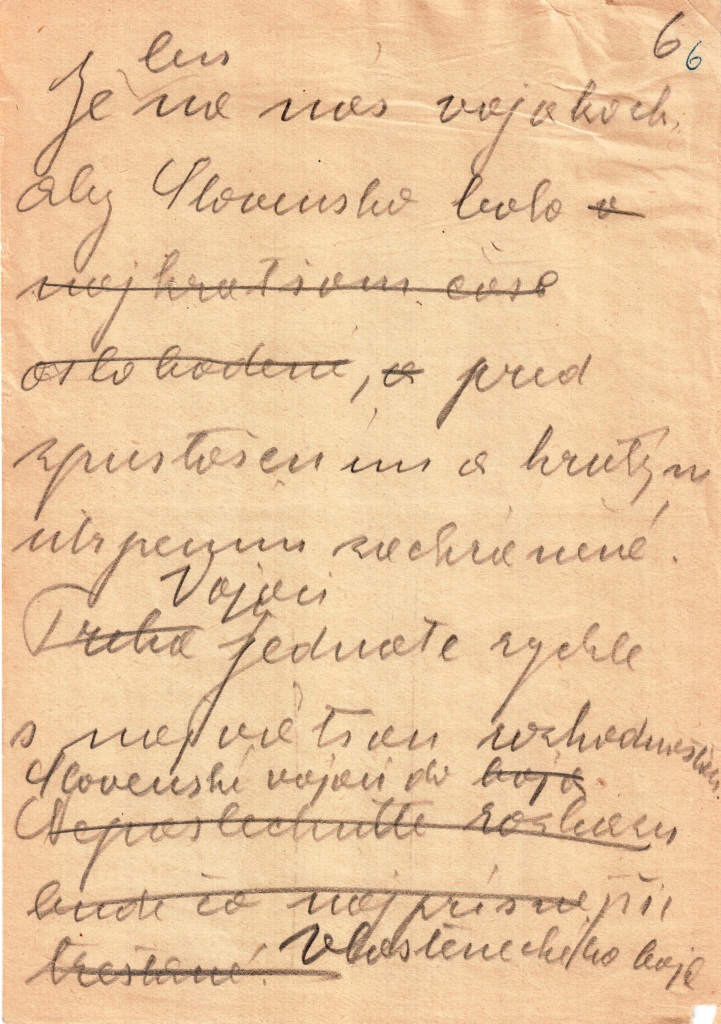 6 6
len
Je na nás vojakoch,
aby Slovensko bolo v
najkratšom čase
oslobodené, a pred
zpustošením a krutým
utrpením zachránené.
Vojaci
Treba jednate rychle
s najväčšou rozhodnosťou.
Slovenskí vojaci do boja
Neposlechnutie rozkazu
bude čo najprísnejšie
trestané. Vlasteneckého boja